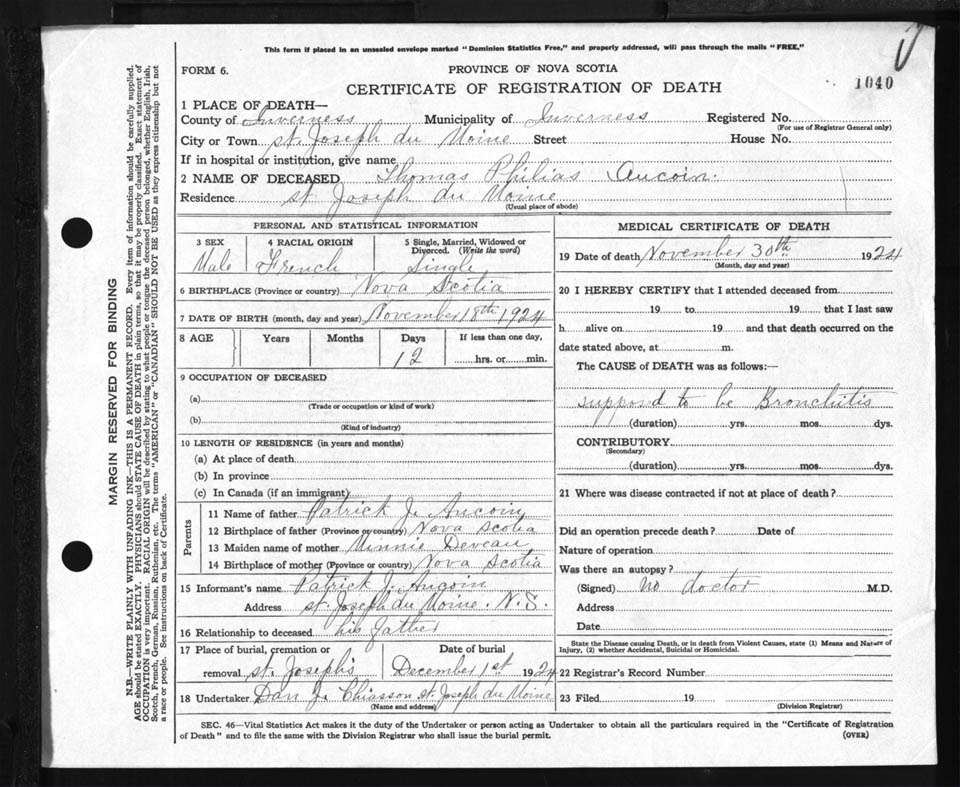 This form if placed in an unsealed envelope marked "Dominion Statistics Free," and properly addressed, will pass through the mails "FREE."
FORM 6.
PROVINCE OF NOVA SCOTIA
1040
CERTIFICATE OF REGISTRATION OF DEATH
1 PLACE OF DEATH—
County of Inverness Municipality of Inverness Registered No.
(For use of Registrar General only)
City or Town St. Joseph du Moine Street House No.
If in hospital or institution, give name
2 NAME OF DECEASED Thomas Philias Aucoin.
Residence St Joseph du Moine
(Usual place of abode)
PERSONAL AND STATISTICAL INFORMATION
3 SEX 4 RACIAL ORIGIN 5 Single, Married, Widowed or Divorced. (Write the word)
Male French Single
6 BIRTHPLACE (Province or country) Nova Scotia
7 DATE OF BIRTH (month, day and year) November 18th 1924
8 AGE Years Months Days If less than one day,
12 hrs. or min.
9 OCCUPATION OF DECEASED
(a)
(Trade or occupation or kind of work)
(b)
(Kind of industry)
10 LENGTH OF RESIDENCE (in years and months)
(a) At place of death
(b) In province
(c) In Canada (if an immigrant)
Parents
11 Name of father Patrick J. Aucoin
12 Birthplace of father (Province or country) Nova Scotia
13 Maiden name of mother Minnie Deveau
14 Birthplace of mother (Province or country) Nova Scotia
15 Informant's name Patrick J. Aucoin
Address St. Joseph du Moine. N.S.
16 Relationship to deceased his father
17 Place of burial, cremation or Date of burial
removal St. Joseph's December 1st 1924
18 Undertaker Dan J. Chiasson St. Joseph du Moine
(Name and address)
MEDICAL CERTIFICATE OF DEATH
19 Date of death November 30th 1924
(Month, day and year)
20 I HEREBY CERTIFY that I attended deceased from
19 to 19 that I last saw
h alive on 19 and that death occurred on the
date stated above, at m.
The CAUSE of DEATH was as follows:—
suppord to be Bronchitis
(duration) yrs. mos. dys.
CONTRIBUTORY
(Secondary)
(duration) yrs. mos. dys.
21 Where was disease contracted if not at place of death?
Did an operation precede death? Date of
Nature of operation
Was there an autopsy?
(Signed) no doctor M.D.
Address
Date
State the Disease causing Death, or in death from Violent Causes, state (1) Means and Nature of
Injury, (2) whether Accidental, Suicidal or Homicidal.
22 Registrar's Record Number
23 Filed 19
(Division Registrar)
SEC. 46—Vital Statistics Act makes it the duty of the Undertaker or person acting as Undertaker to obtain all the particulars required in the "Certificate of Registration
of Death" and to file the same with the Division Registrar who shall issue the burial permit.
(OVER)
MARGIN RESERVED FOR BINDING
N.B.—WRITE PLAINLY WITH UNFADING INK—THIS IS A PERMANENT RECORD. Every item of information should be carefully supplied.
AGE should be stated EXACTLY. PHYSICIANS should STATE CAUSE OF DEATH in plain terms, so that it may be properly classified. Exact statement of
OCCUPATION is very important. RACIAL ORIGIN will be described by stating to what people or tongue the deceased person belonged, whether English, Irish,
Scotch, French, German, Russian, Ruthenian, etc. The terms "AMERICAN" or "CANADIAN" SHOULD NOT BE USED as they express citizenship but not
a race or people. See instructions on back of Certificate.